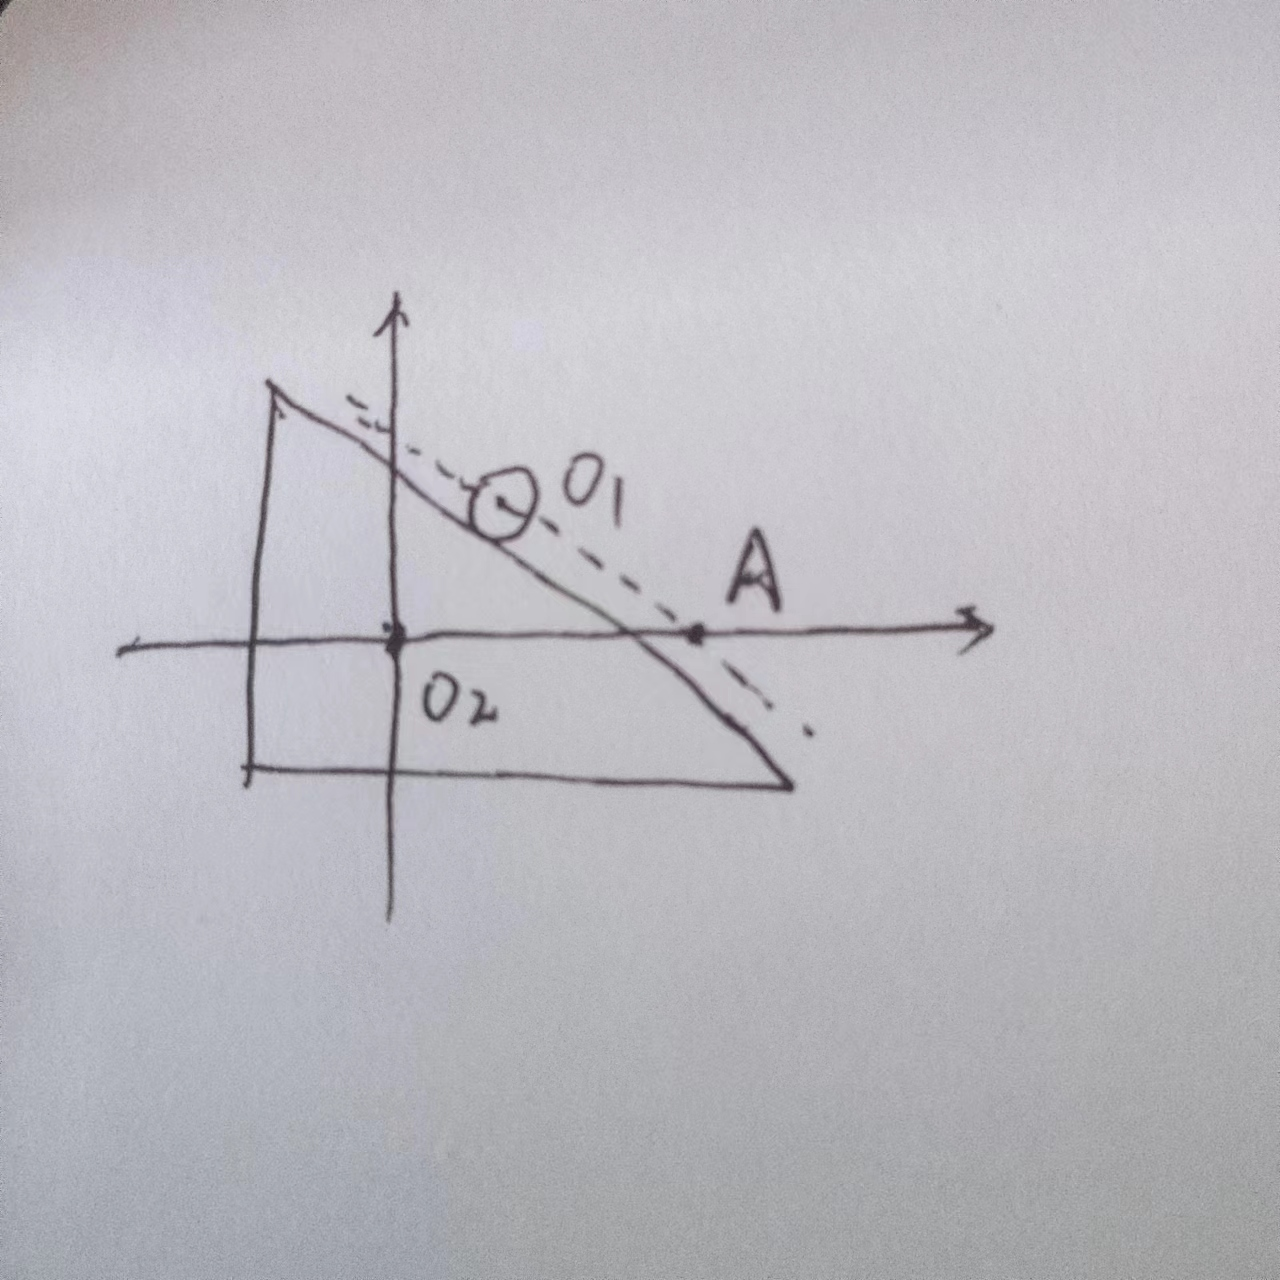 O₁
A
O₂